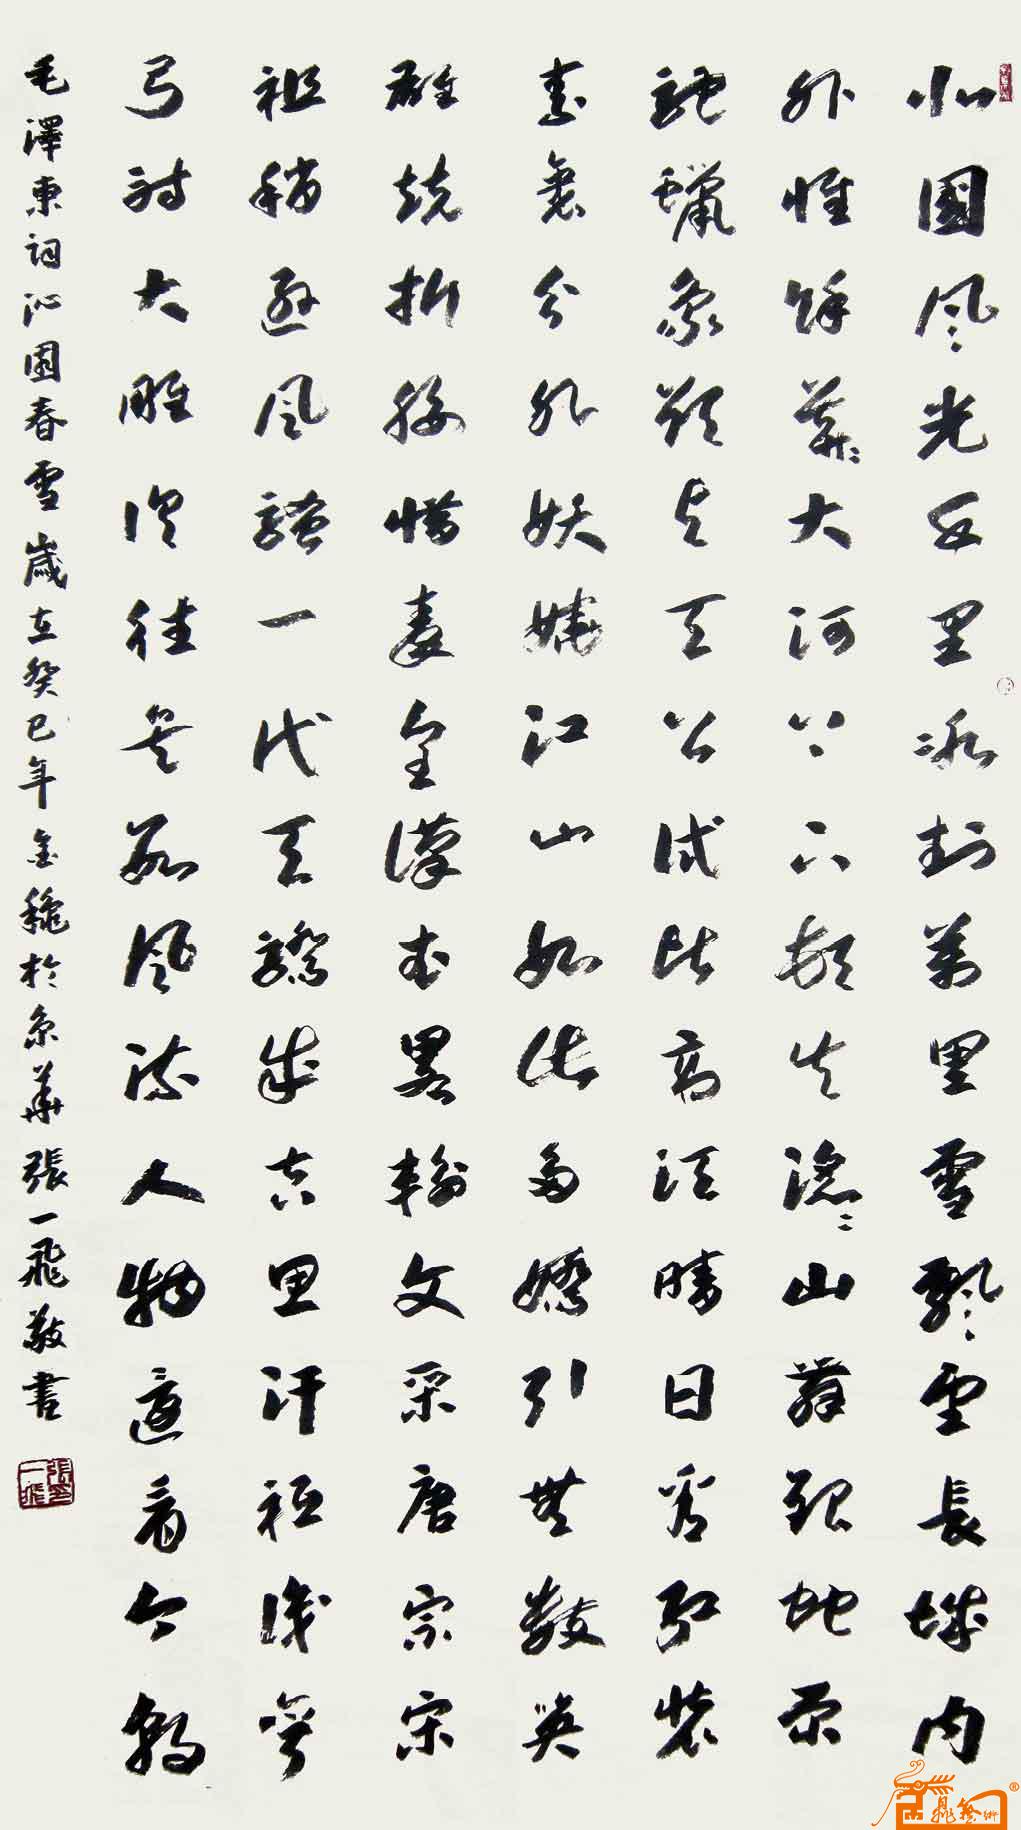 北國風光千里冰封萬里雪飄望長城内
外惟餘莽〻大河上下頓失滔〻山舞銀蛇原
馳蠟象欲与天公試比高須晴日看紅裝
素裹分外妖嬈江山如此多嬌引無數英
雄競折腰惜秦皇漢武畧輸文采唐宗宋
祖稍遜風騷一代天驕成吉思汗祗識彎
弓射大雕俱往矣數風流人物還看今朝
毛澤東詞沁園春雪歲在癸巳年金穐於京華張一飛敬書